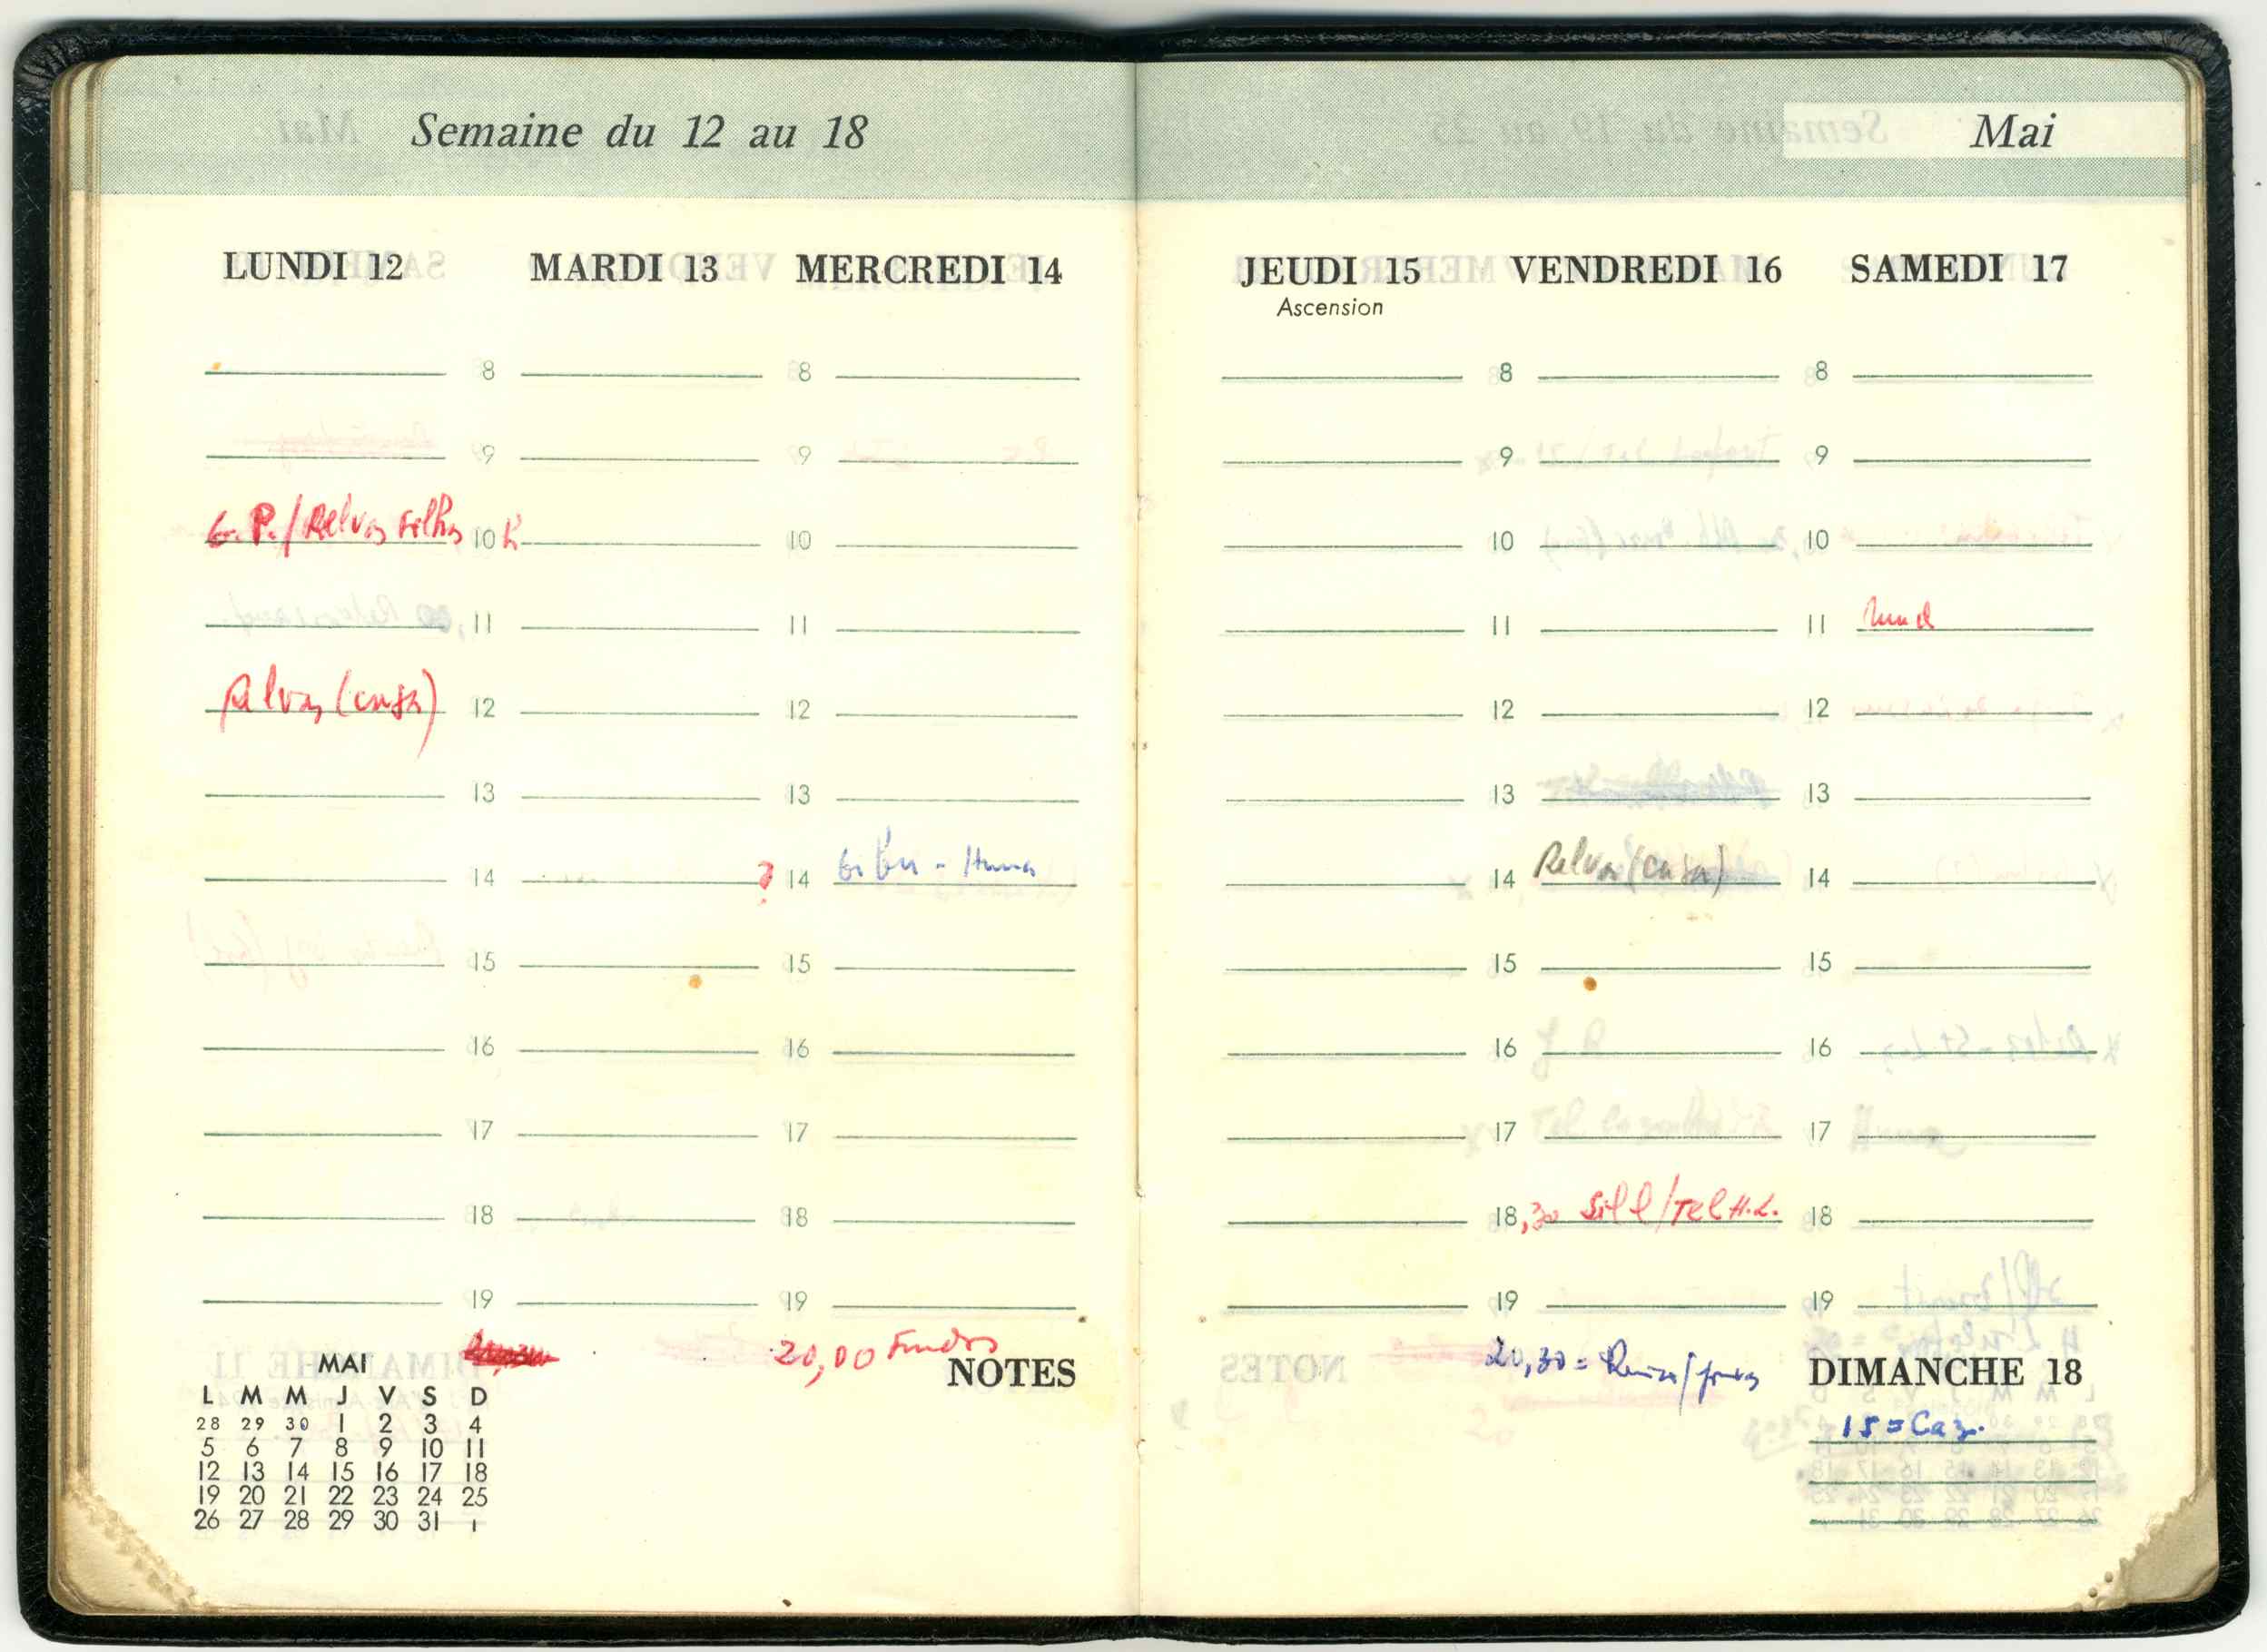 Semaine du 12 au 18
LUNDI 12 MARDI 13 MERCREDI 14
8 8
9 9
G. P. / Relvas Filho 10 h 10
11 11
Relvas (casa) 12 12
13 13
14 ? 14
15 15
16 16
17 17
18 18
19 19
20,00 Fundos
NOTES
MAI
L M M J V S D
28 29 30 1 2 3 4
5 6 7 8 9 10 11
12 13 14 15 16 17 18
19 20 21 22 23 24 25
26 27 28 29 30 31 1
Mai
JEUDI 15 VENDREDI 16 SAMEDI 17
Ascension
8 8
9 9
10 10
11 11
12 12
13 13
14 Relvas (casa) 14
15 15
16 16
17 17
18,30 Sill / Tel H.L. 18
19 19
20,30 =
DIMANCHE 18
15 = Caz.